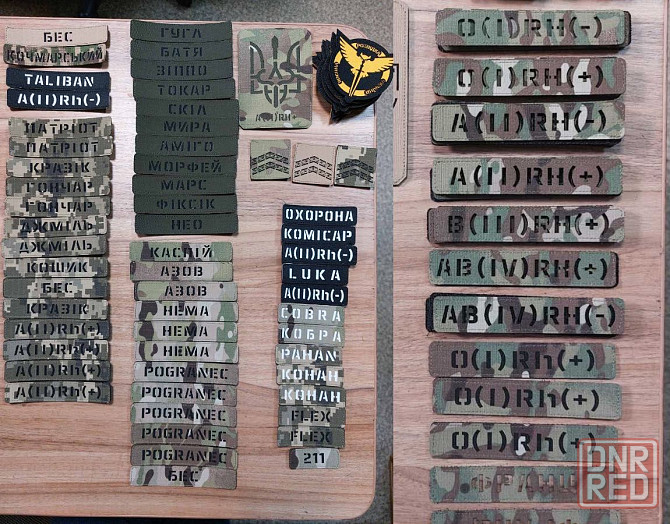 БЕС
КОЧМАРСЬКИЙ
TALIBAN
A(II)Rh(-)
ПАТРІОТ
ПАТРІОТ
КРАЗІК
ГОНЧАР
ГОНЧАР
ДЖМІЛЬ
ДЖМІЛЬ
КОШИК
БЕС
КРАЗІК
A(II)Rh(+)
A(II)Rh(+)
A(II)Rh(+)
A(II)Rh(+)
ГУГЛ
БАТЯ
ЗІППО
ТОКАР
СКІЛ
МИРА
АМІГО
МОРФЕЙ
МАРС
ФІКСІК
НЕО
КАСПІЙ
АЗОВ
АЗОВ
НЕМА
НЕМА
НЕМА
POGRANEC
POGRANEC
POGRANEC
POGRANEC
POGRANEC
БЕС
A(II)RH+
ОХОРОНА
КОМІСАР
A(II)Rh(-)
LUKA
A(II)Rh(-)
COBRA
КОБРА
PAHAN
КОНАН
КОНАН
FLEX
FLEX
211
O(I)RH(-)
O(I)RH(+)
A(II)RH(-)
A(II)RH(+)
B(III)RH(+)
AB(IV)RH(+)
AB(IV)RH(-)
O(I)Rh(+)
O(I)Rh(+)
O(I)Rh(+)
DNR
RED